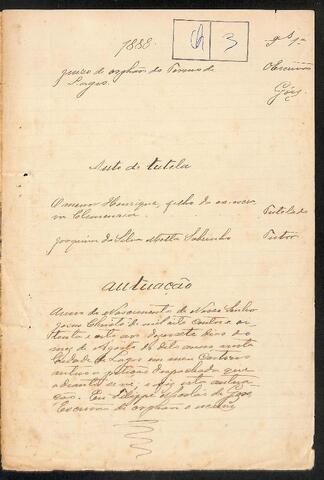 1888
ch 3
Juizo de orphãos do Termo de
Lages
Escrivão
Góes
Auto de tutela
O menor Henrique, filho da ex-escra-
va Clemencia.
Tutelado
Joaquim da Silva Motta Sobrinho
Tutor
Autuação
Anno do Nascimento de Nosso Senhor
Jesus Christo de mil oito centos e oi
tenta e oito aos dezesete dias do
mez de Agosto do dito anno nesta
Cidade de Lages em meu Cartorio
autuo a petição despachada que
adiante se vê, e fiz esta autua
ção. Eu Felippe Nicolau de Góes
Escrivão de orphãos o escrevi